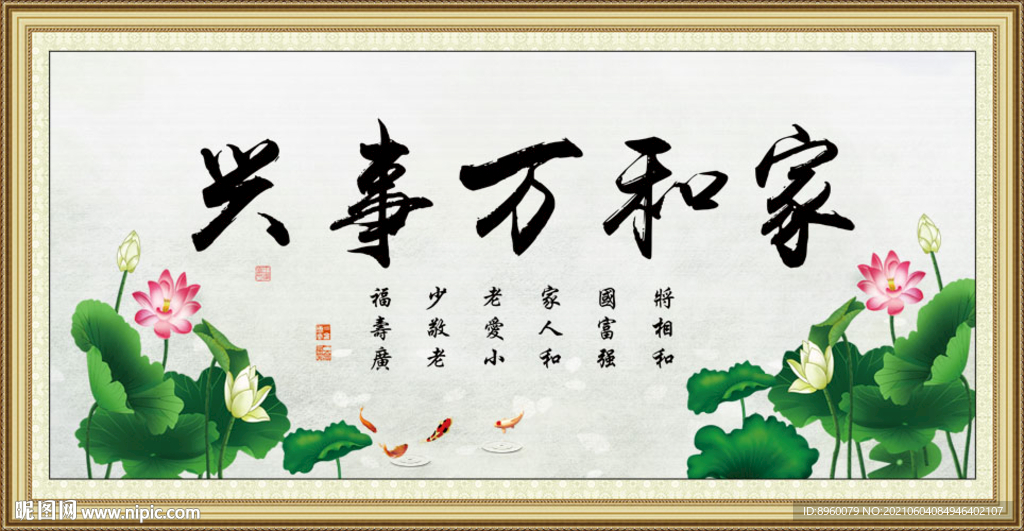 家和万事兴
將相和
國富强
家人和
老愛小
少敬老
福壽廣
昵图网 www.nipic.com
ID:8960079 NO:20210604084946402107